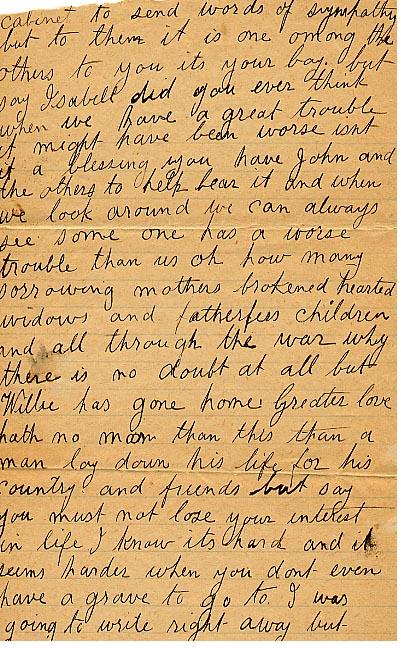 cabinet to send words of sympathy
but to them it is one among the
others to you its your boy. but
say Isabell did you ever think
when we have a great trouble
it might have been worse isnt
it a blessing you have John and
the others to help bear it and when
we look around we can always
see some one has a worse
trouble than us oh how many
sorrowing mothers brokened hearted
widows and fatherless children
and all through the war why
there is no doubt at all but
Willie has gone home Greater love
hath no man than this than a
man lay down his life for his
country and friends but say
you must not lose your interest
in life I know its hard and it
seems harder when you dont even
have a grave to go to. I was
going to write right away but